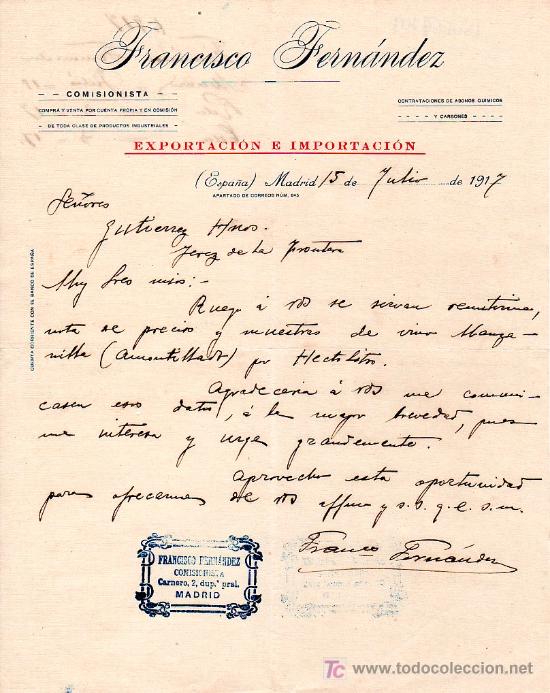 Francisco Fernández
COMISIONISTA
COMPRA Y VENTA POR CUENTA PROPIA Y EN COMISIÓN
DE TODA CLASE DE PRODUCTOS INDUSTRIALES
CONTRATACIONES DE ABONOS QUIMICOS
Y CARBONES
EXPORTACIÓN E IMPORTACIÓN
(España) Madrid 15 de Julio de 1917
APARTADO DE CORREOS NÚM. 845
CUENTA CORRIENTE CON EL BANCO DE ESPAÑA
Señores
Gutierrez Hnos.
Jerez de la Frontera
Muy Sres mios:-
Ruego á VS se sirvan remitirme,
nota de precios y muestras de vino Manza-
nilla (Amontillado) por Hectolitro.
Agradeceria á VS me comuni-
casen esos datos, á la mayor brevedad, pues
me interesa y urge grandemente.
Aprovecho esta oportunidad
para ofrecerme de VS affmo y s.s.q.e.s.m.
Franco Fernández
FRANCISCO FERNÁNDEZ
COMISIONISTA
Carnero, 2, dup.º pral.
MADRID
TC www.todocoleccion.net